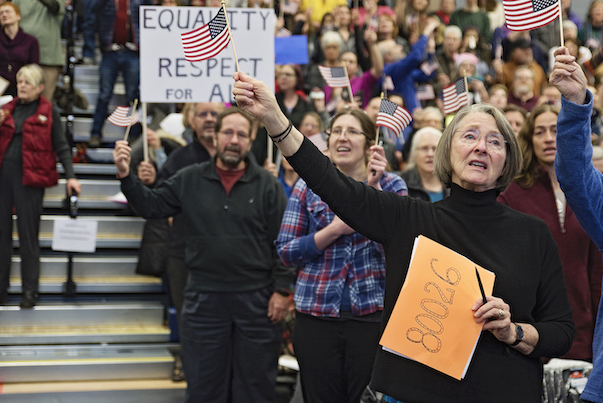 EQUALITY
RESPECT
FOR
80026